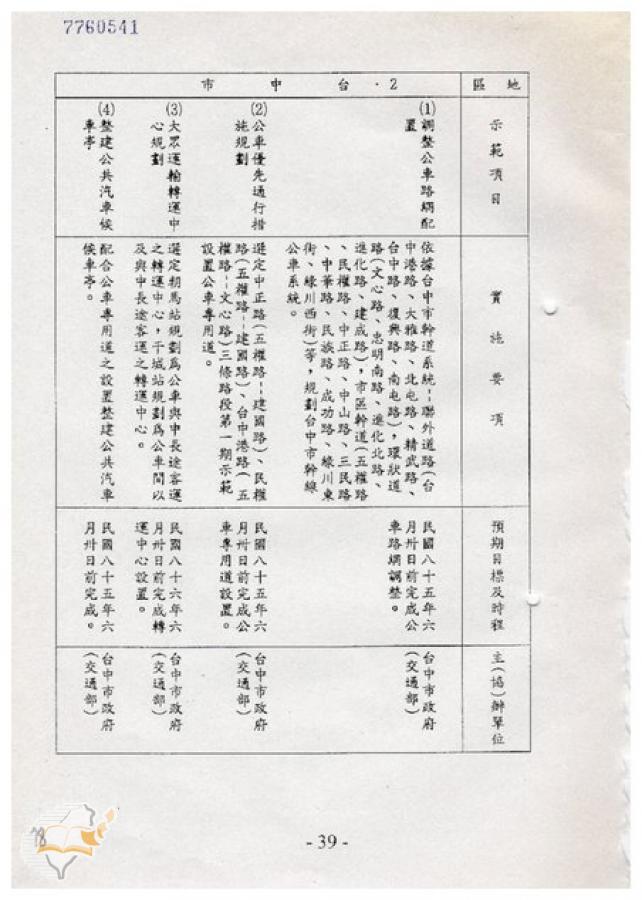 7760541
地區
2．台中市
示範項目
(1)調整公車路網配
置
(2)公車優先通行措
施規劃
(3)大眾運輸轉運中
心規劃
(4)整建公共汽車候
車亭
實施要項
依據台中市幹道系統--聯外道路(台
中港路、大雅路、北屯路、精武路、
台中路、復興路、南屯路)，環狀道
路(文心路、忠明南路、進化北路、
進化路、建成路)，市區幹道(五權路
、民權路、中正路、中山路、三民路
、中華路、民族路、成功路、綠川東
街、綠川西街)等，規劃台中市幹線
公車系統。
選定中正路(五權路--建國路)、民權
路(五權路--建國路)、台中港路(五
權路--文心路)三條路段第一期示範
設置公車專用道。
選定朝馬站規劃為公車與中長途客運
之轉運中心，干城站規劃為公車間以
及與中長途客運之轉運中心。
配合公車專用道之設置整建公共汽車
候車亭。
預期目標及時程
民國八十五年六
月卅日前完成公
車路網調整。
民國八十五年六
月卅日前完成公
車專用道設置。
民國八十六年六
月卅日前完成轉
運中心設置。
民國八十五年六
月卅日前完成。
主(協)辦單位
台中市政府
(交通部)
台中市政府
(交通部)
台中市政府
(交通部)
台中市政府
(交通部)
- 39 -
78